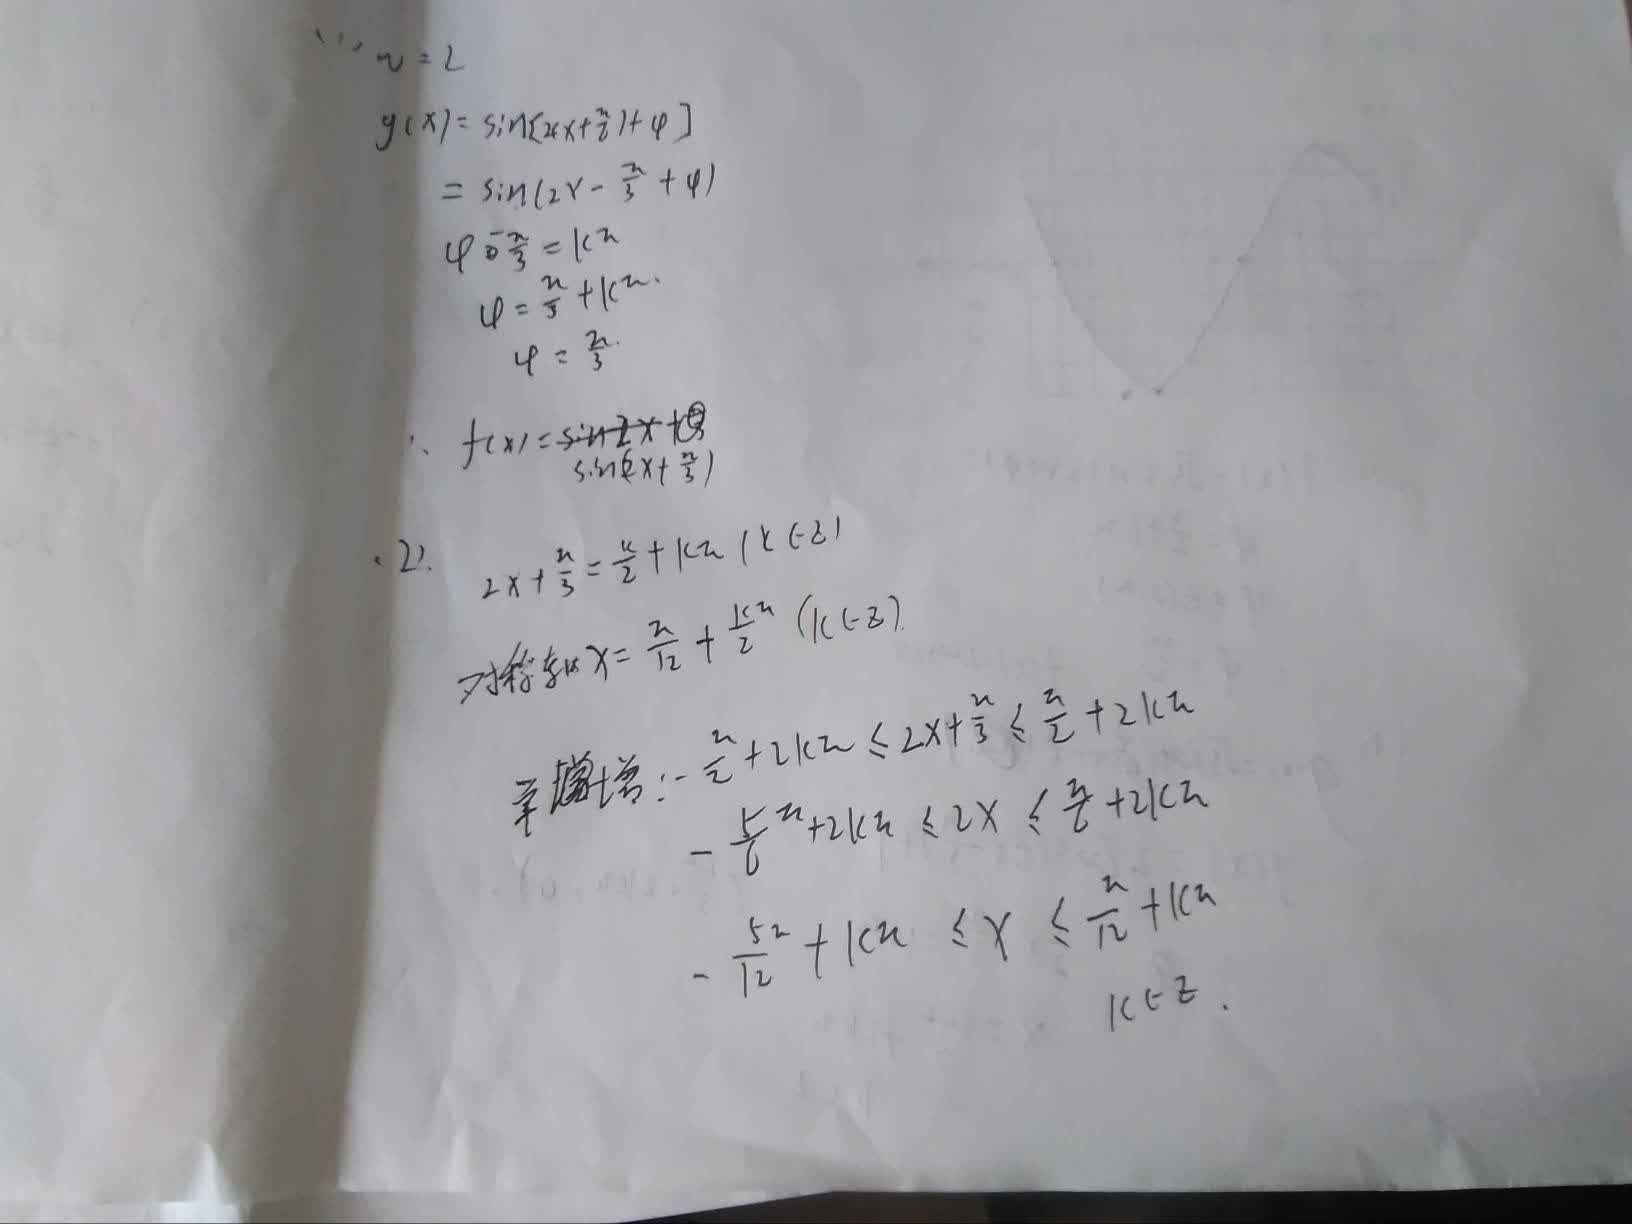 (1) w=2
g(x)=sin[2(x+π/6)+φ]
=sin(2x-π/3+φ)
φ-π/3=kπ
φ=π/3+kπ.
φ=π/3.
∴ f(x)=
sin(2x+π/3)
(2). 2x+π/3=π/2+kπ (k∈Z)
对称轴x=π/12+kπ/2 (k∈Z).
单增:-π/2+2kπ≤2x+π/3≤π/2+2kπ
-5/6π+2kπ≤2x≤π/6+2kπ
-5π/12+kπ≤x≤π/12+kπ
k∈Z.